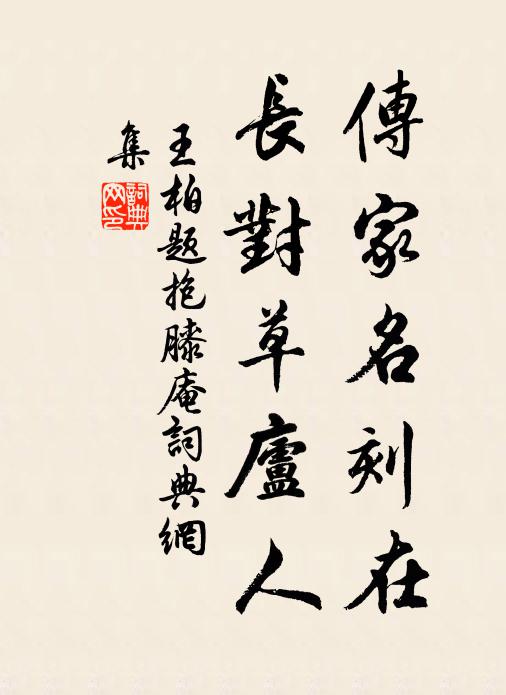 傳家名刻在
長對草廬人
王柏題抱膝庵詞典網
集
詞典
网印